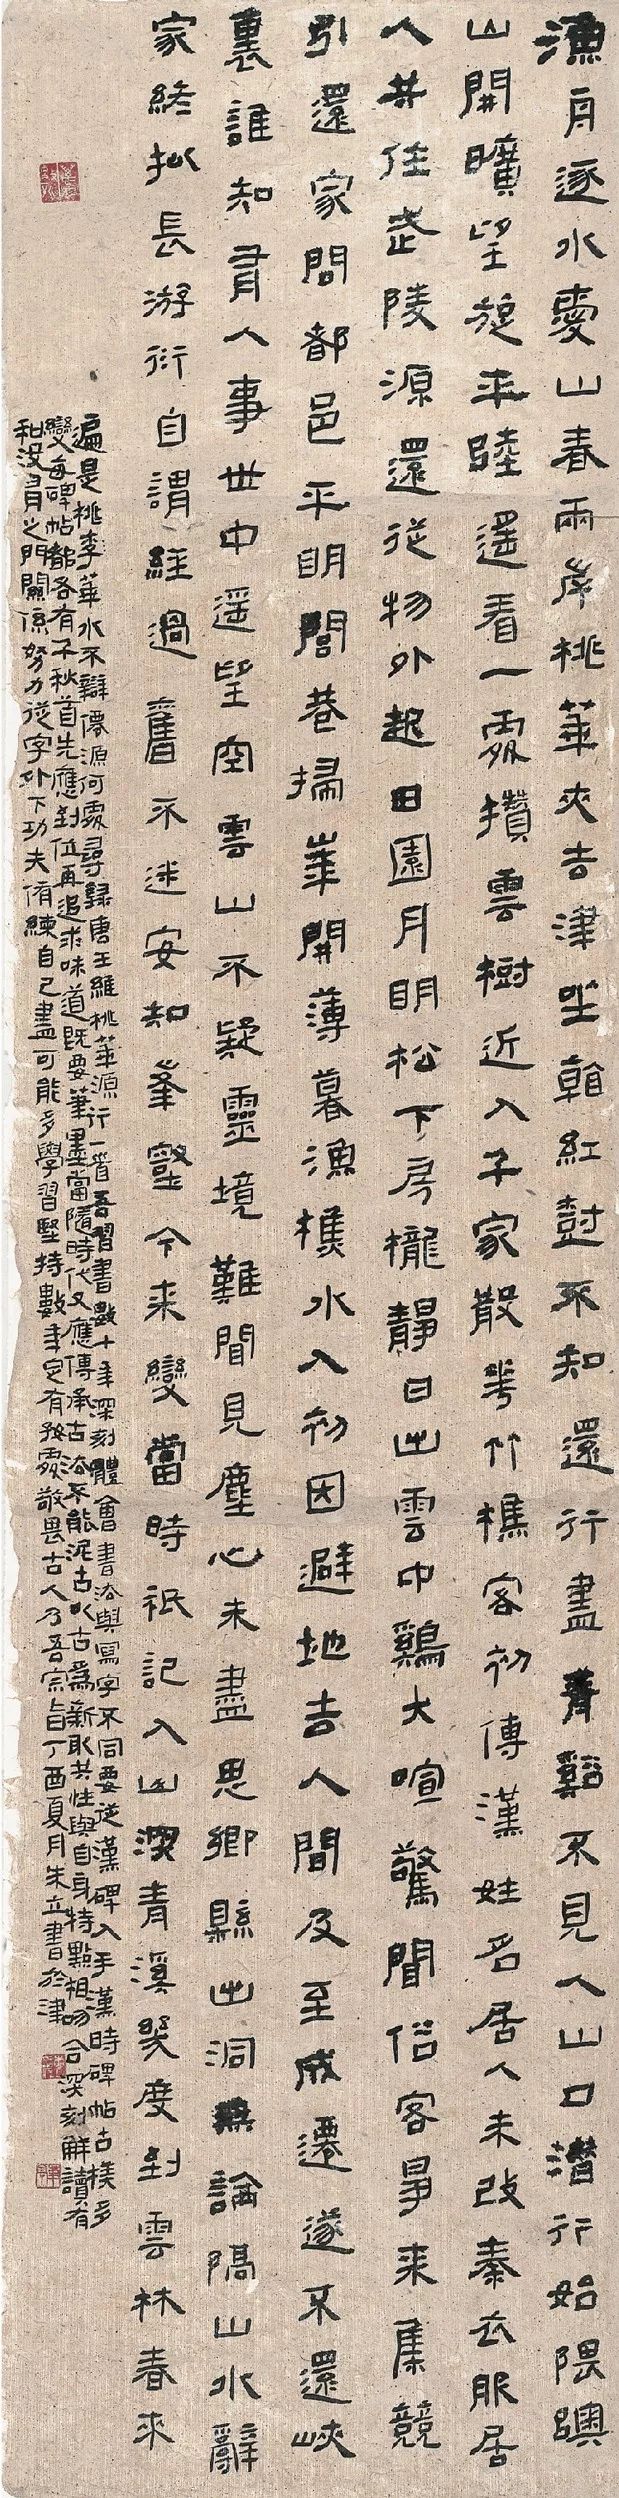 漁舟逐水愛山春兩岸桃華夾去津坐看紅樹不知還行盡青谿不見人山口潛行始隈隩
山開曠望旋平陸遙看一處攢雲樹近入千家散花竹樵客初傳漢姓名居人未改秦衣服居
人共住武陵源還從物外起田園月明松下房櫳靜日出雲中鷄犬喧驚聞俗客爭来集競
引還家問都邑平明閭巷掃華開薄暮漁樵水入初因避地去人間及至成遷遂不還峽
裏誰知有人事世中遥望空雲山不疑靈境難聞見塵心未盡思鄉縣出洞無論隔山水辭
家終拟長游衍自謂経過舊不迷安知峯壑今来變當時祇記入山深青溪幾度到雲林春來
遍是桃李華水不辯僊源何處尋録唐王維桃華源行一首吾習書數十年深刻體會書法與寫字不同要従漢碑入手漢時碑帖古樸多
變每碑帖都各有千秋首先應到位再追求味道既要筆墨當隨時代又應傳承古法不能泥古以古爲新取共性與自身特點相吻合深刻解讀有
和没有之門關係努力従字外下功夫脩練自己盡可能多學習堅持數年定有發處敬畏古人乃吾宗旨丁酉夏月朱立書於津